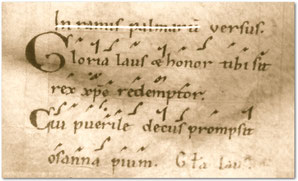 In ramis palmarũ versus.
Gloria Laus & honor tibi sit
rex xp̃e redemptor.
Cui puerile decus prompsit
osanna pium. Gła laus